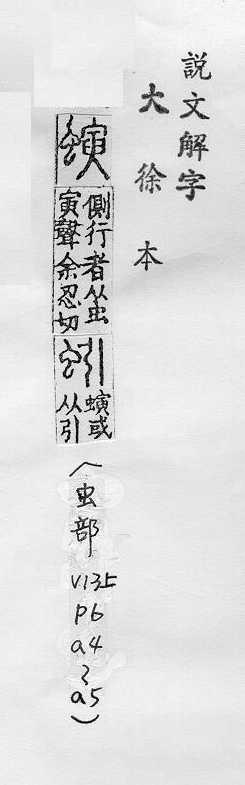 說文解字
大徐本
螾
側行者从虫
寅聲余忍切
蚓
螾或
从引
(虫部 v13上 p6 a4~a5)